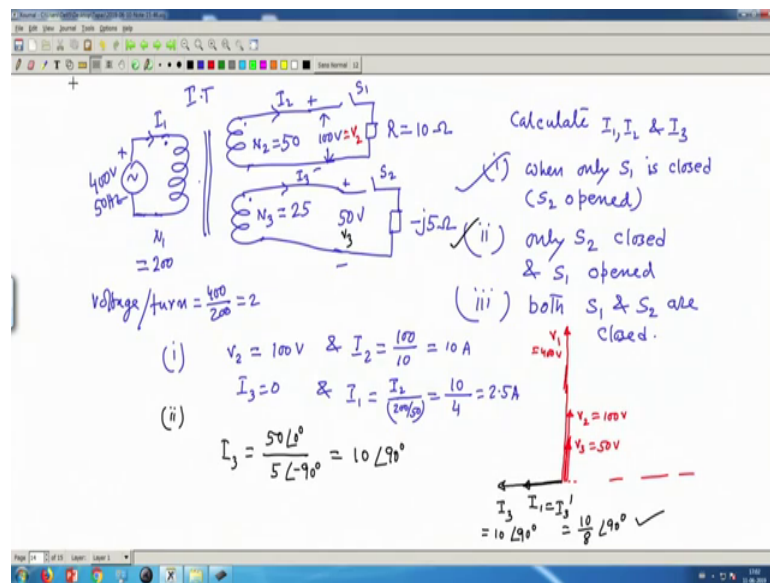 File Edit View Journal Tools Options Help
Sans Normal 12
I.T
I₁
I₂ +
S₁
400V
50Hz
+
N₂ = 50
100V = V₂
R = 10 Ω
-
I₃
+
S₂
N₃ = 25
50V
V₃
-j5Ω
-
N₁
= 200
Voltage/turn = 400/200 = 2
Calculate I₁, I₂ & I₃
(i) when only S₁ is closed
(S₂ opened)
(ii) only S₂ closed
& S₁ opened
(iii) both S₁ & S₂ are
closed.
(i) V₂ = 100V & I₂ = 100/10 = 10 A
I₃ = 0 & I₁ = I₂/(200/50) = 10/4 = 2.5A
(ii)
I₃ = 50∠0°/5∠-90° = 10∠90°
V₁
= 400V
V₂ = 100V
V₃ = 50V
I₃ I₁ = I₃'
= 10∠90° = 10/8 ∠90°
Page 14 of 15 Layer: Layer 1
17:02